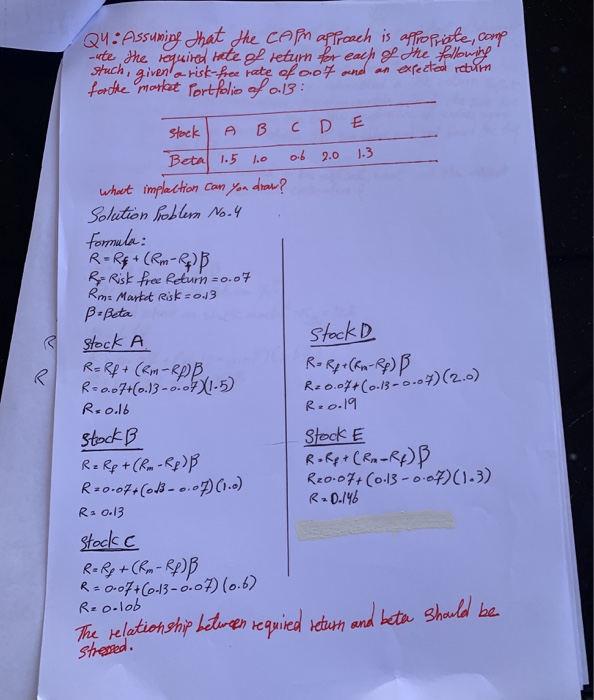 Q4: Assuming that the CAPM approach is appropriate, comp
-ute the required rate of return for each of the following
stuch, given a risk-free rate of 0.07 and an expected return
for the market Portfolio of 0.13:
Stock A B C D E
Beta 1.5 1.0 0.6 2.0 1.3
what implaction can you draw?
Solution Problem No.4
Formula:
R = Rf + (Rm-Rf)β
Rf= Risk free Return = 0.07
Rm= Market Risk = 0.13
β=Beta
R
R
Stock A
R=Rf+ (Rm-Rf)β
R=0.07+(0.13-0.07)(1.5)
R=0.16
Stock B
R=Rf+(Rm-Rf)β
R=0.07+(0.13-0.07)(1.0)
R=0.13
Stock C
R=Rf+(Rm-Rf)β
R=0.07+(0.13-0.07)(0.6)
R=0.106
Stock D
R=Rf+(Rm-Rf)β
R=0.07+(0.13-0.07)(2.0)
R=0.19
Stock E
R=Rf+(Rm-Rf)β
R=0.07+(0.13-0.07)(1.3)
R=0.146
The relationship between required return and beta should be
stressed.